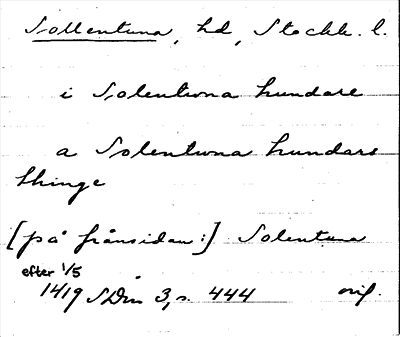 Sollentuna, hd, Stockh. l.
i Solentwna hundare
a Solentwna hundars
thinge
[på frånsidan:] Solentuna
efter 1/5
1419 SDns 3, s. 444 orig.